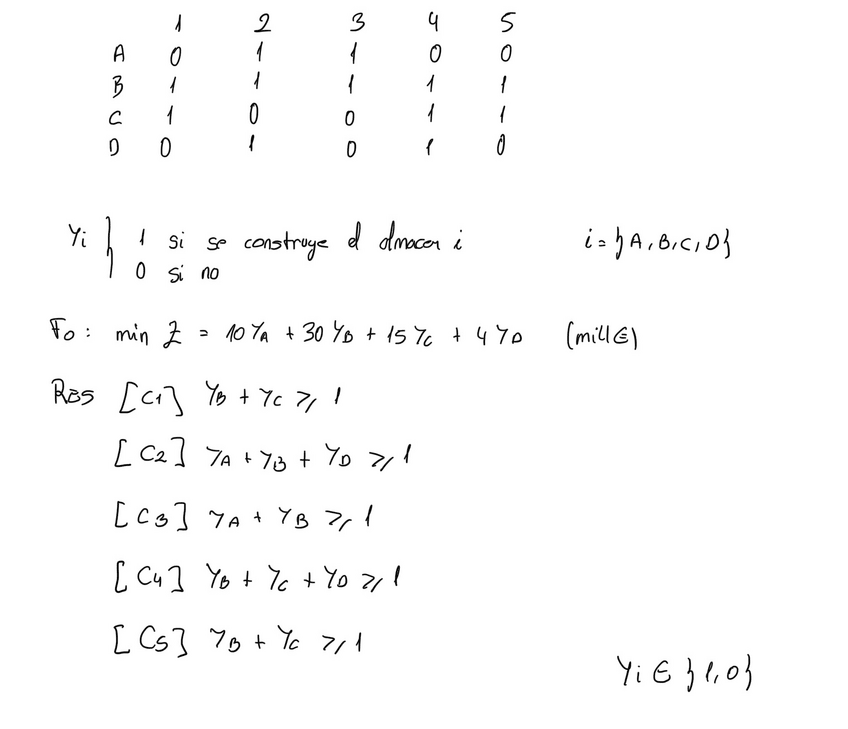 1 2 3 4 5
A 0 1 1 0 0
B 1 1 1 1 1
C 1 0 0 1 1
D 0 1 0 1 0
Yi } 1 si se construye el almacen i i = }A, B, C, D}
0 si no
Fo: min Z = 10 YA + 30 YB + 15 YC + 4 YD (mill€)
RES [C1] YB + YC ≥ 1
[C2] YA + YB + YD ≥ 1
[C3] YA + YB ≥ 1
[C4] YB + YC + YD ≥ 1
[C5] YB + YC ≥ 1
Yi ∈ }1, 0}